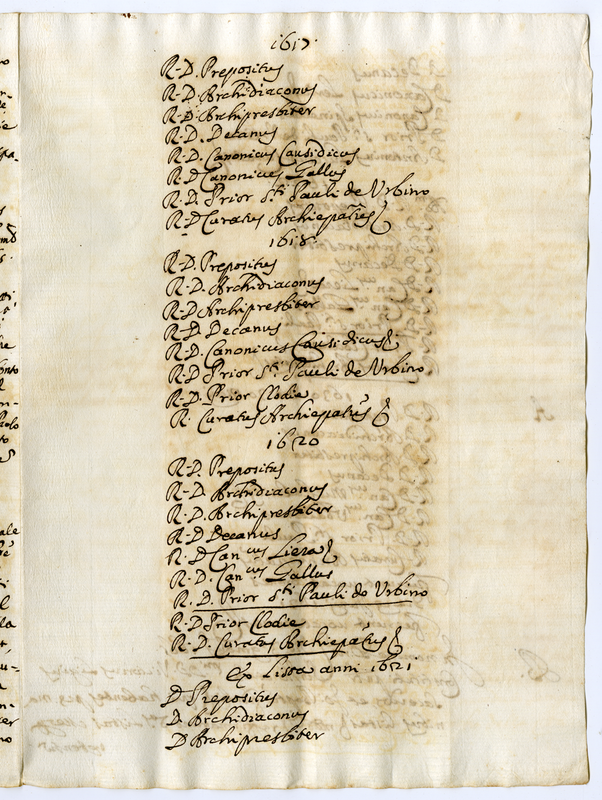 1617
R. D. Prepositus
R. D. Archidiaconus
R. D. Archipresbiter
R. D. Decanus
R. D. Canonicus Causidicus
R. D Canonicus Gallus
R. D. Prior S.ti Pauli de Urbino
R. D Curatus Archiep̃atus
1618.
R. D. Prepositus
R. D. Archidiaconus
R. D Archipresbiter
R. D Decanus
R. D. Canonicus Causidicus
R. D Prior S.ti Pauli de Urbino
R. D. Prior Clodie
R. Curatus Archiep̃atus
1620
R. D. Prepositus
R. D. Archidiaconus
R. D. Archipresbiter
R. D Decanus
R. D Can.cus
R. D. Can.cus Gallus
R. D. Prior S.ti Pauli de Urbino
R. D Prior Clodie
R. D. Curatus Archiep̃atus
Ex Lista anni 1621
D Prepositus
D Archidiaconus
D Archipresbiter